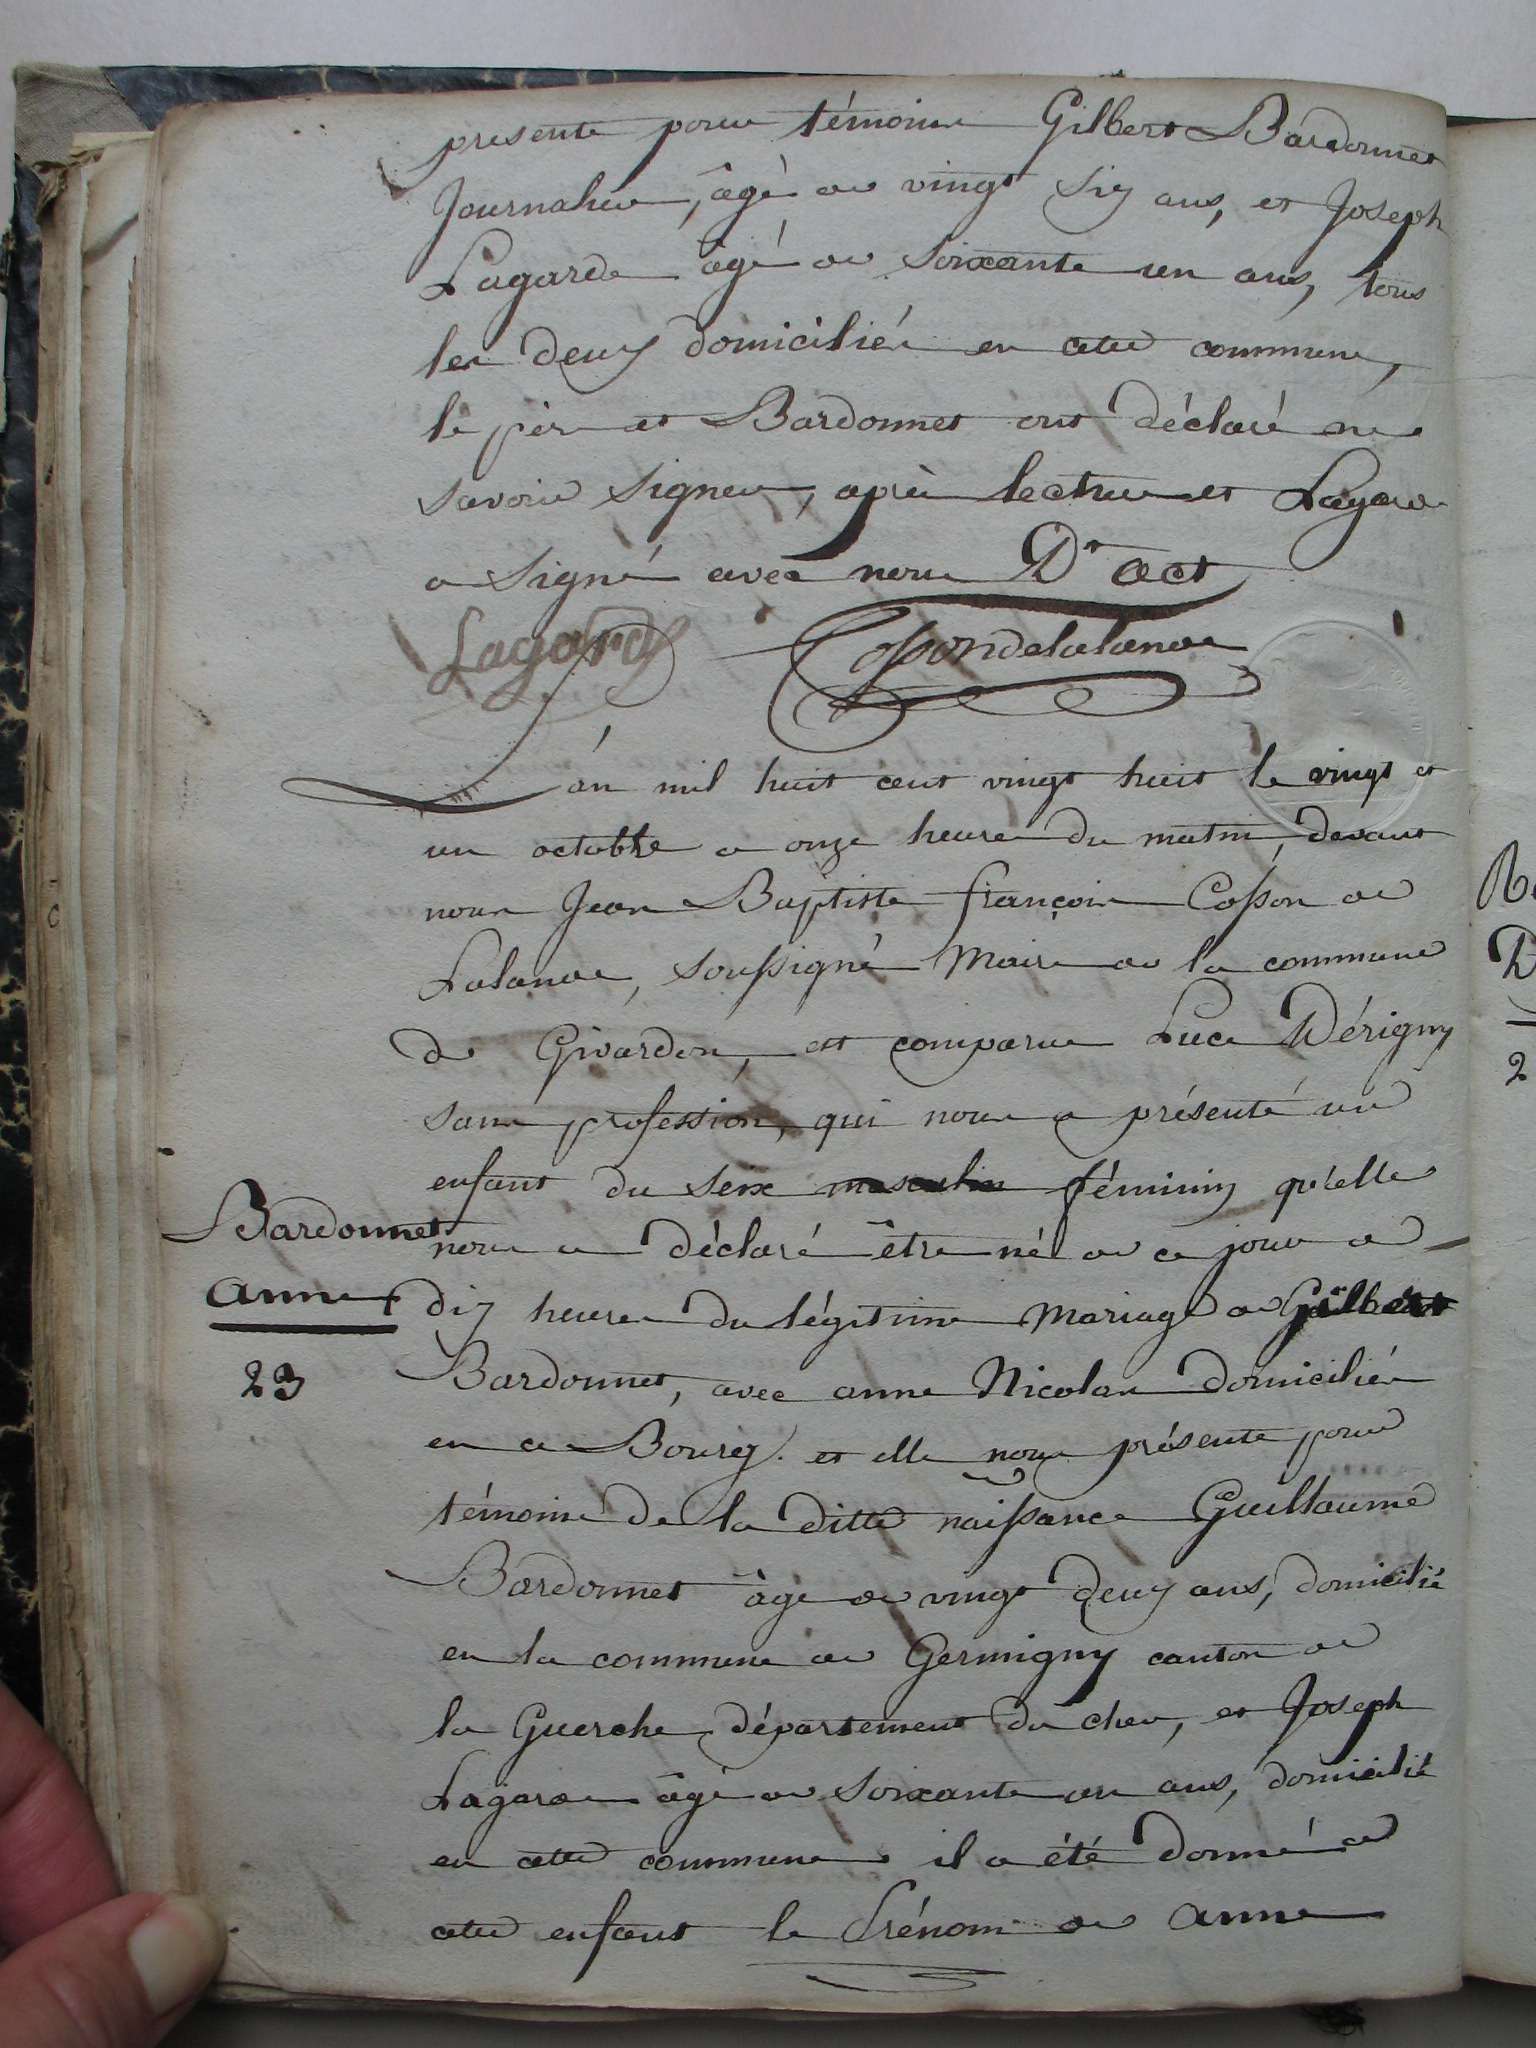 presente pour témoins Gilbert Bardonnet
Journalier, âgé de vingt six ans, et Joseph
Lagarde âgé de soixante un ans, tous
les deux domiciliés en cette commune,
le père et Bardonnet ont déclaré ne
savoir signer, après lecture et Lagarde
a signé avec nous D. act
Lagarde Cossondelalande
L'an mil huit cent vingt huit le vingt et
un octobre a onze heures du matin, devant
nous Jean Baptiste françois Cosson de
Lalande, soussigné Maire de la commune
de Givardon, est comparue Luce Dérigny
sans profession, qui nous a présenté un
enfant du sexe masculin féminin qu'elle
nous a déclaré être né de ce jour a
Bardonnet
anne
23
dix heures du légitime Mariage de Gilbert
Bardonnet, avec anne Nicolas domiciliés
en ce Bourg. et elle nous présente pour
témoins de la ditte naissance Guillaume
Bardonnet âgé de vingt deux ans, domicilié
en la commune de Germigny canton de
la Guerche département du cher, et Joseph
Lagarde âgé de soixante un ans, domicilié
en cette commune il a été donné a
cette enfant le Prénom de anne